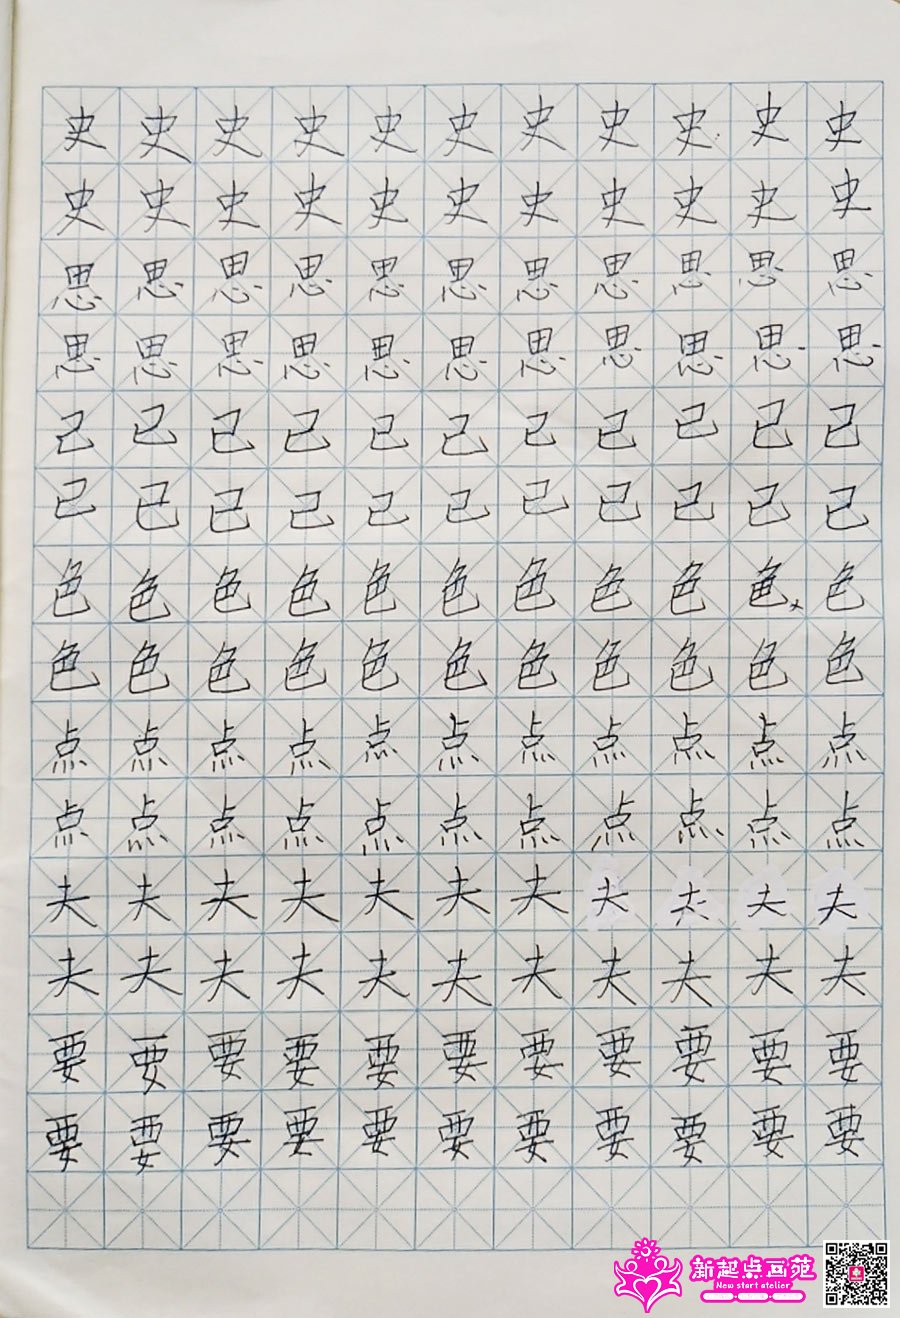 史史史史史史史史史史史
史史史史史史史史史史史
思思思思思思思思思思思
思思思思思思思思思思思
己己己己己己己己己己己
己己己己己己己己己己己
色色色色色色色色色色色
色色色色色色色色色色色
点点点点点点点点点点点
点点点点点点点点点点点
夫夫夫夫夫夫夫夫夫夫夫
夫夫夫夫夫夫夫夫夫夫夫
要要要要要要要要要要要
要要要要要要要要要要要
新起点画苑
New start atelier